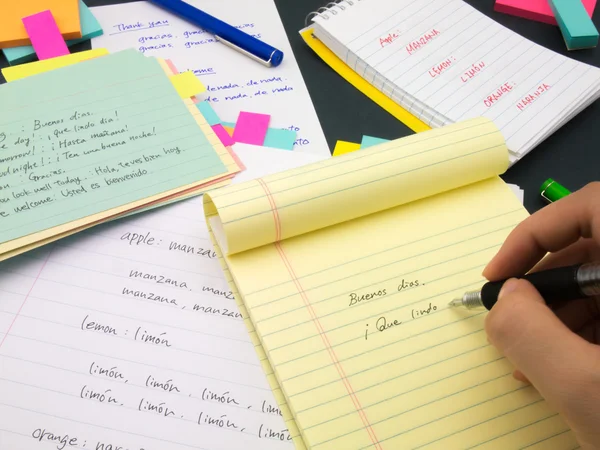 Thank you
gracias, gracias, gracias
gracias, gracias, gracias
de nada, de nada.
de nada, de nada
Apple: MANZANA
LEMON: LIMÓN
ORANGE: NARANJA
: Buenos dias.
day! : ¡que lindo dia!
: ¡Hasta mañana!
night! : ¡Ten una buena noche!
Gracias.
you look well today. Hola, te ves bien hoy.
welcome. Usted es bienvenido.
apple: manzana
manzana, manz
manzana, manzan
lemon: limón
limón, limón, limón, lim
limón, limón, limón, limón
orange:
Buenos dias.
¡Que lindo